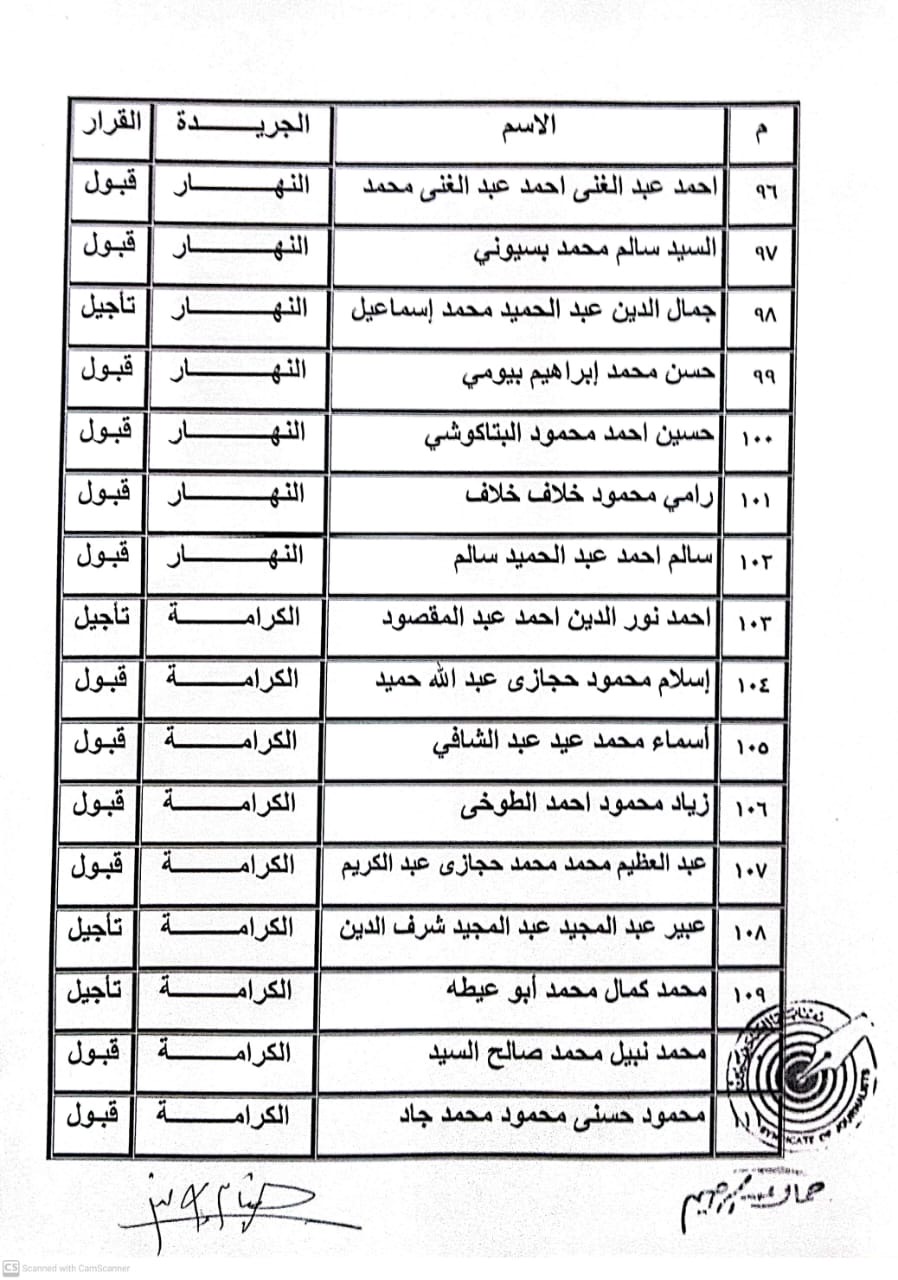 م الاسم الجريـــــدة القرار
٩٦ احمد عبد الغنى احمد عبد الغنى محمد النهـــــــار قبول
٩٧ السيد سالم محمد بسيوني النهـــــــار قبول
٩٨ جمال الدين عبد الحميد محمد إسماعيل النهـــــــار تأجيل
٩٩ حسن محمد إبراهيم بيومي النهـــــــار قبول
١٠٠ حسين احمد محمود البتاكوشي النهـــــــار قبول
١٠١ رامي محمود خلاف خلاف النهـــــــار قبول
١٠٢ سالم احمد عبد الحميد سالم النهـــــــار قبول
١٠٣ احمد نور الدين احمد عبد المقصود الكرامـــــــة تأجيل
١٠٤ إسلام محمود حجازى عبد الله حميد الكرامـــــــة قبول
١٠٥ أسماء محمد عيد عبد الشافي الكرامـــــــة قبول
١٠٦ زياد محمود احمد الطوخى الكرامـــــــة قبول
١٠٧ عبد العظيم محمد محمد حجازى عبد الكريم الكرامـــــــة قبول
١٠٨ عبير عبد المجيد عبد المجيد شرف الدين الكرامـــــــة تأجيل
١٠٩ محمد كمال محمد أبو عيطه الكرامـــــــة تأجيل
محمد نبيل محمد صالح السيد الكرامـــــــة قبول
محمود حسنى محمود محمد جاد الكرامـــــــة قبول
SYNDICATE OF JOURNALISTS
CS Scanned with CamScanner